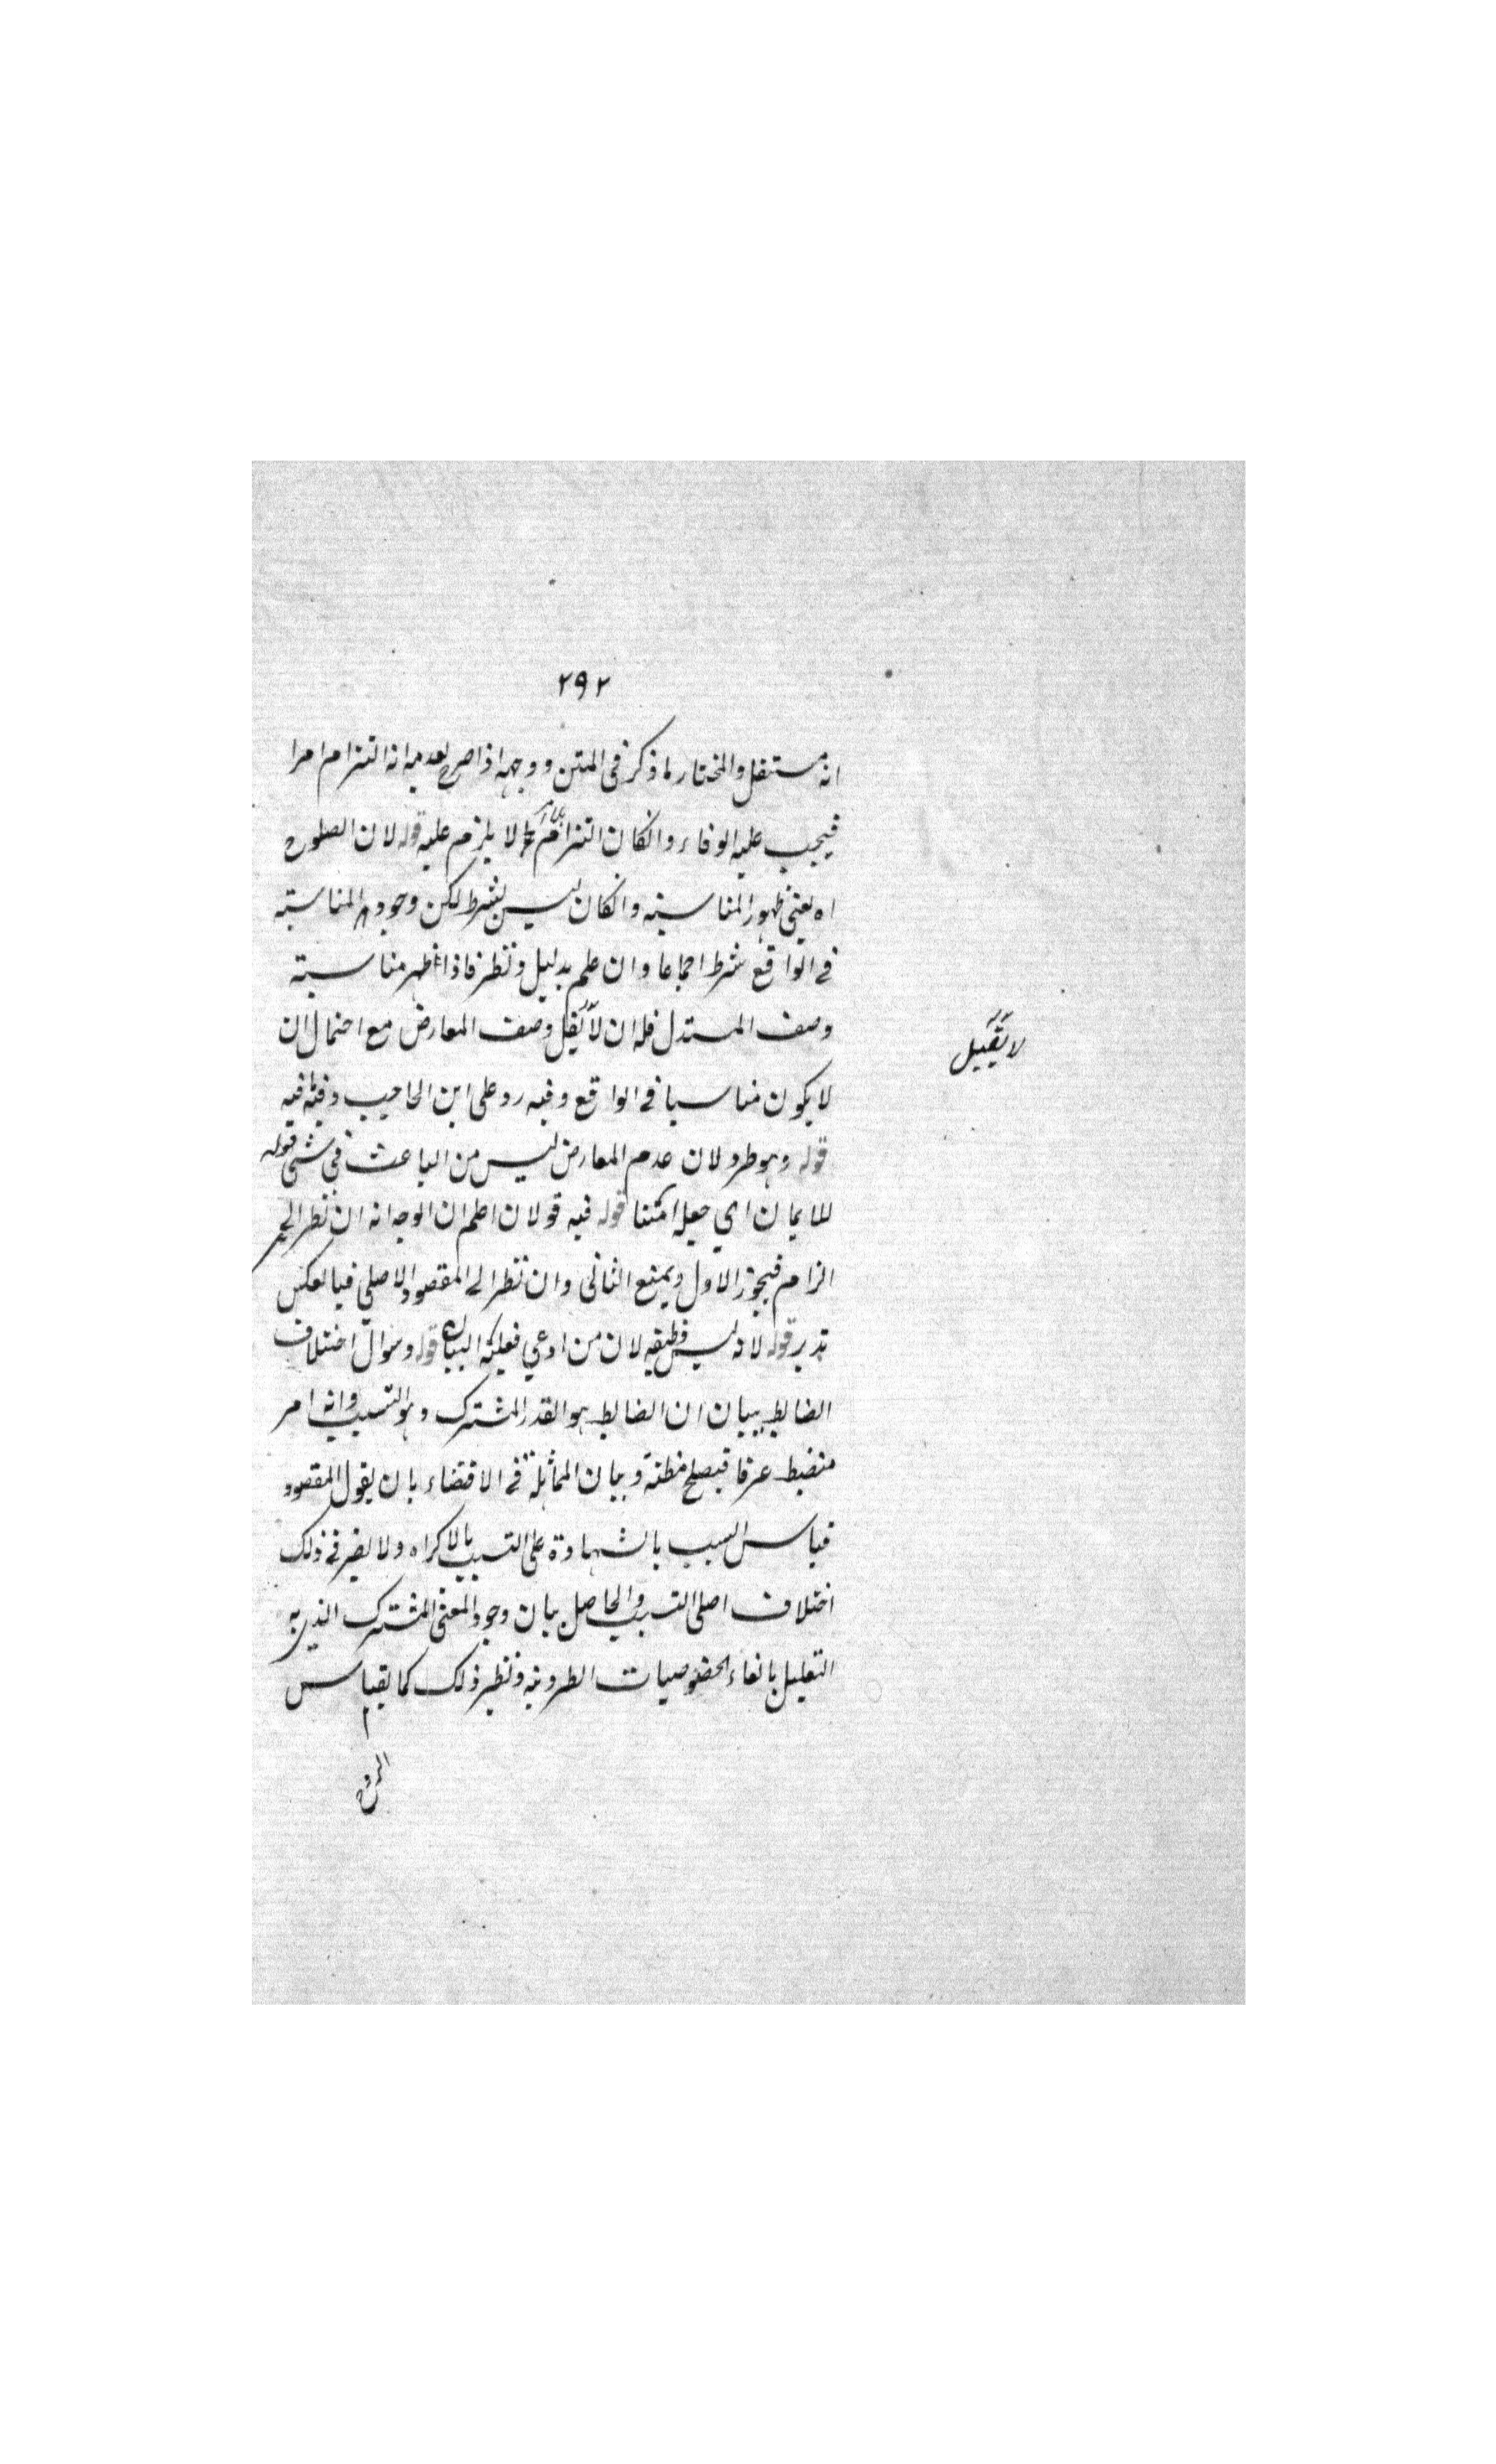 ٢٩٢
انه مستقل والمختار ما ذكر فى المتن ووجهه اذا صرح بعدمه انه التزام امرا
فيجب عليه الوفاء وانكان التزام لا يلزم عليه قوله لان الصلوح
اه يعنى ظهور المناسبة وانكان ليس بشرط لكن وجود المناسبة
فى الواقع شرط اجماعا وان علم بدليل ونظر فاذا ظهر مناسبة
وصف المستدل فله ان لا يقبل وصف المعارض مع احتمال ان
لا يقبل
لا يكون مناسبا فى الواقع وفيه رد على ابن الحاجب فيه
قوله وهو طرد لان عدم المعارض ليس من الباعث فى شئ قوله
للايمان اي جعله آمنا قوله فيه قولان اعلم ان الوجه انه ان نظر الى
الزام فيجوز الاول ويمنع الثانى وان نظر الى المقصود الاصلى فبالعكس
تدبر قوله لا وليس وظيفته لان من ادعي فعليه البيان قوله وسوال اختلاف
الضابط ببيان ان الضابط هو القدر المشترك وهو التسبب وانه امر
منضبط عرفا فيصلح مظنة وبيان المماثلة فى الاقتضاء بان يقول المقصود
قياس السبب بالشهادة على التسبب بالاكراه ولا يضر فى ذلك
اختلاف اصلى التسبب والحاصل بيان وجود المعنى المشترك الذي به
التعليل بالغاء الخصوصيات الطردية ونظير ذلك كما يقياس